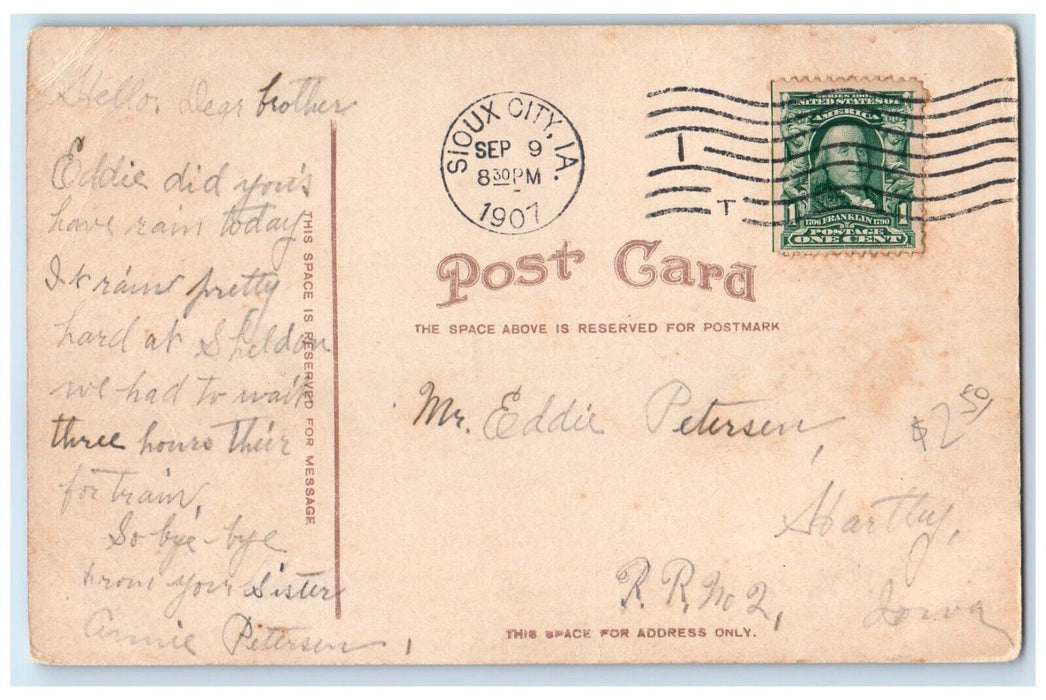 Hello. Dear brother
Eddie did you's
have rain today
It rain pretty
hard at Sheldon
we had to wait
three hours their
for train,
So bye-bye
from your Sister
Annie Petersen,
THIS SPACE IS RESERVED FOR MESSAGE
SIOUX CITY, IA.
SEP 9
8 30 PM
1907
T
SERIES 1902
UNITED STATES OF
AMERICA
1 1706 FRANKLIN 1790 1
POSTAGE
ONE CENT
Post Card
THE SPACE ABOVE IS RESERVED FOR POSTMARK
Mr. Eddie Petersen,
$2 50
Hartley,
R. R. No 2,
Iowa
THIS SPACE FOR ADDRESS ONLY.